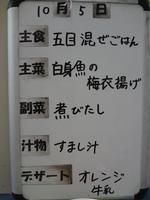 10月5日
主食 五目混ぜごはん
主菜 白身魚の
梅衣揚げ
副菜 煮びたし
汁物 すまし汁
デザート オレンジ
牛乳